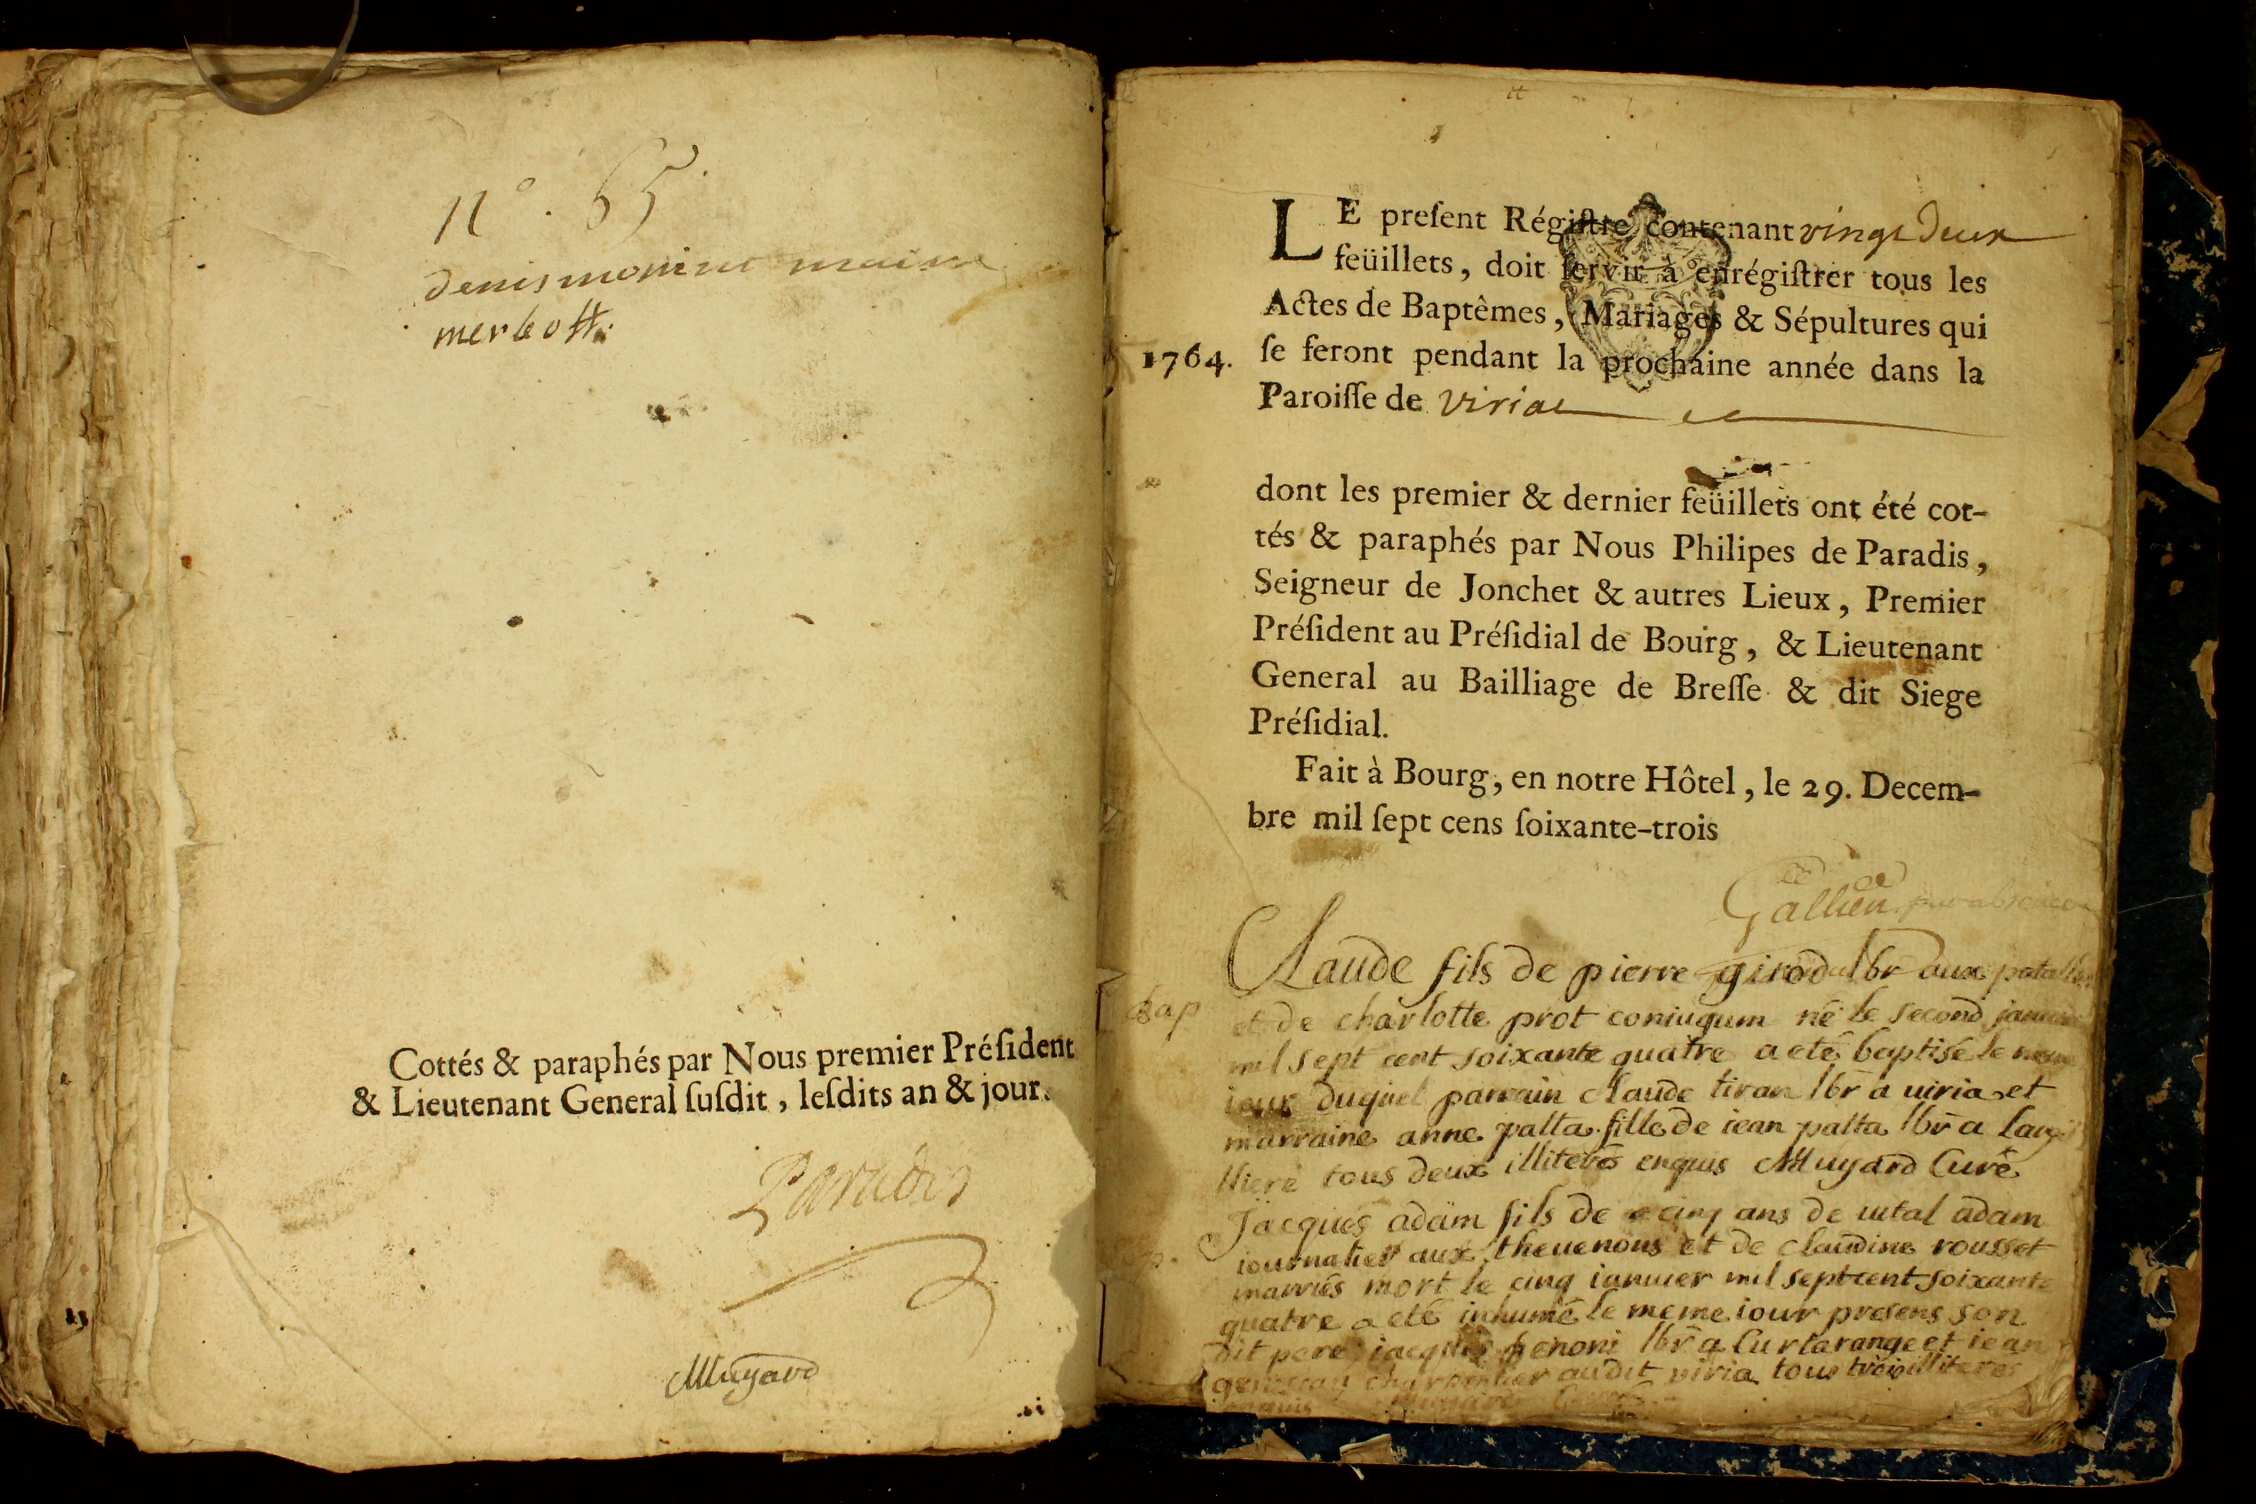 N°. 65
denis monint maire
Cottés & paraphés par Nous premier Préſident
& Lieutenant General ſuſdit, leſdits an & jour.
Paradis
Muyard
LE preſent Régiſtre contenant vingt deux
feüillets, doit ſervir à enrégiſtrer tous les
Actes de Baptêmes, Mariages & Sépultures qui
1764. ſe feront pendant la prochaine année dans la
Paroiſſe de viriat
dont les premier & dernier feüillets ont été cot-
tés & paraphés par Nous Philipes de Paradis,
Seigneur de Jonchet & autres Lieux, Premier
Préſident au Préſidial de Bourg, & Lieutenant
General au Bailliage de Breſſe & dit Siege
Préſidial.
Fait à Bourg, en notre Hôtel, le 29. Decem-
bre mil ſept cens ſoixante-trois
Gallien
Claude fils de pierre girod lbr aux
bap et de charlotte prot coniugum né le second janvier
mil sept cent soixante quatre a eté baptisé le meme
iour duquel parrain claude tiran lbr a uiria et
marraine anne palta fille de iean palta lbr a
tous deux illiterés enquis Muyard Curé
Jacques adam fils de cinq ans de uital adam
iournalier aux theuenons et de claudine rousset
marriés mort le cinq ianuier mil sept cent soixante
quatre a eté inhumé le meme iour presens son
dit pere jacques benoni lbr a Curtarange et iean
charpentier audit viria tous trois illiteres